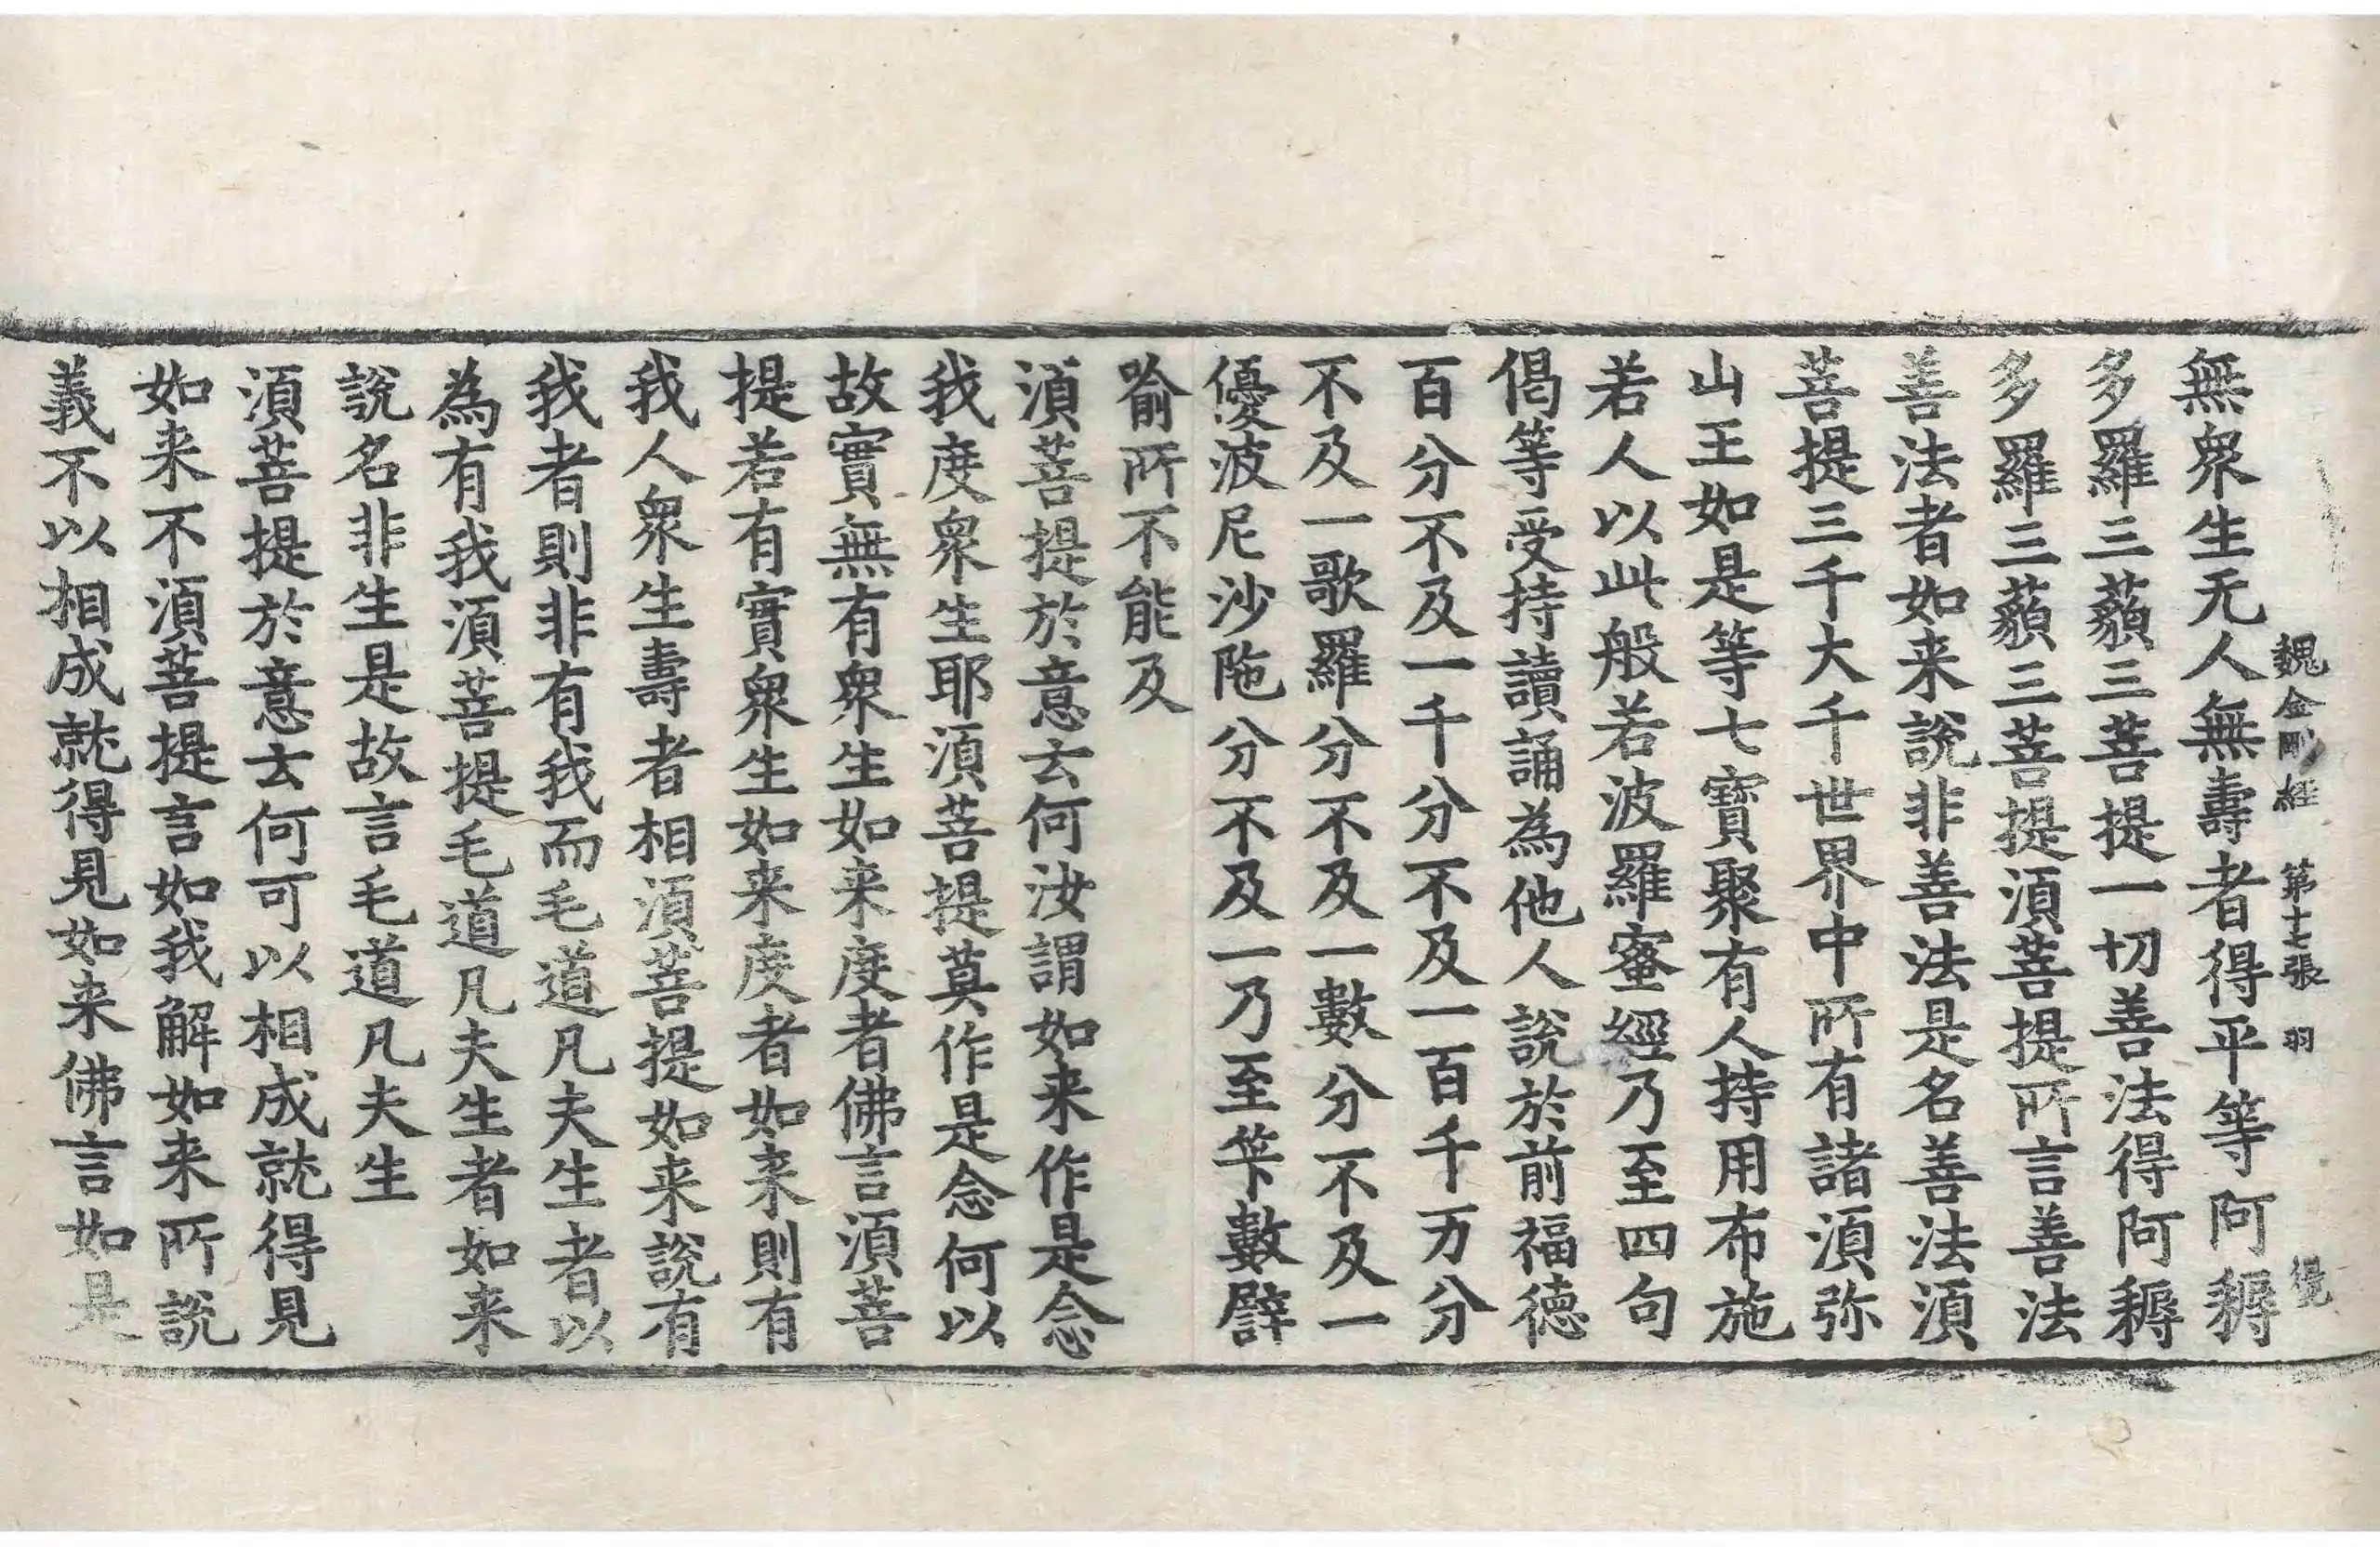 魏金剛經 第十七張 羽
無衆生无人無壽者得平等阿耨
多羅三藐三菩提一切善法得阿耨
多羅三藐三菩提須菩提所言善法
善法者如来說非善法是名善法須
菩提三千大千世界中所有諸須弥
山王如是等七寶聚有人持用布施
若人以此般若波羅蜜經乃至四句
偈等受持讀誦為他人說於前福德
百分不及一千分不及一百千万分
不及一歌羅分不及一數分不及一
優波尼沙陁分不及一乃至筭數譬
喻所不能及
須菩提於意云何汝謂如来作是念
我度衆生耶須菩提莫作是念何以
故實無有衆生如来度者佛言須菩
提若有實衆生如来度者如来則有
我人衆生壽者相須菩提如来說有
我者則非有我而毛道凡夫生者以
為有我須菩提毛道凡夫生者如来
說名非生是故言毛道凡夫生
須菩提於意云何可以相成就得見
如来不須菩提言如我解如来所說
義不以相成就得見如来佛言如是